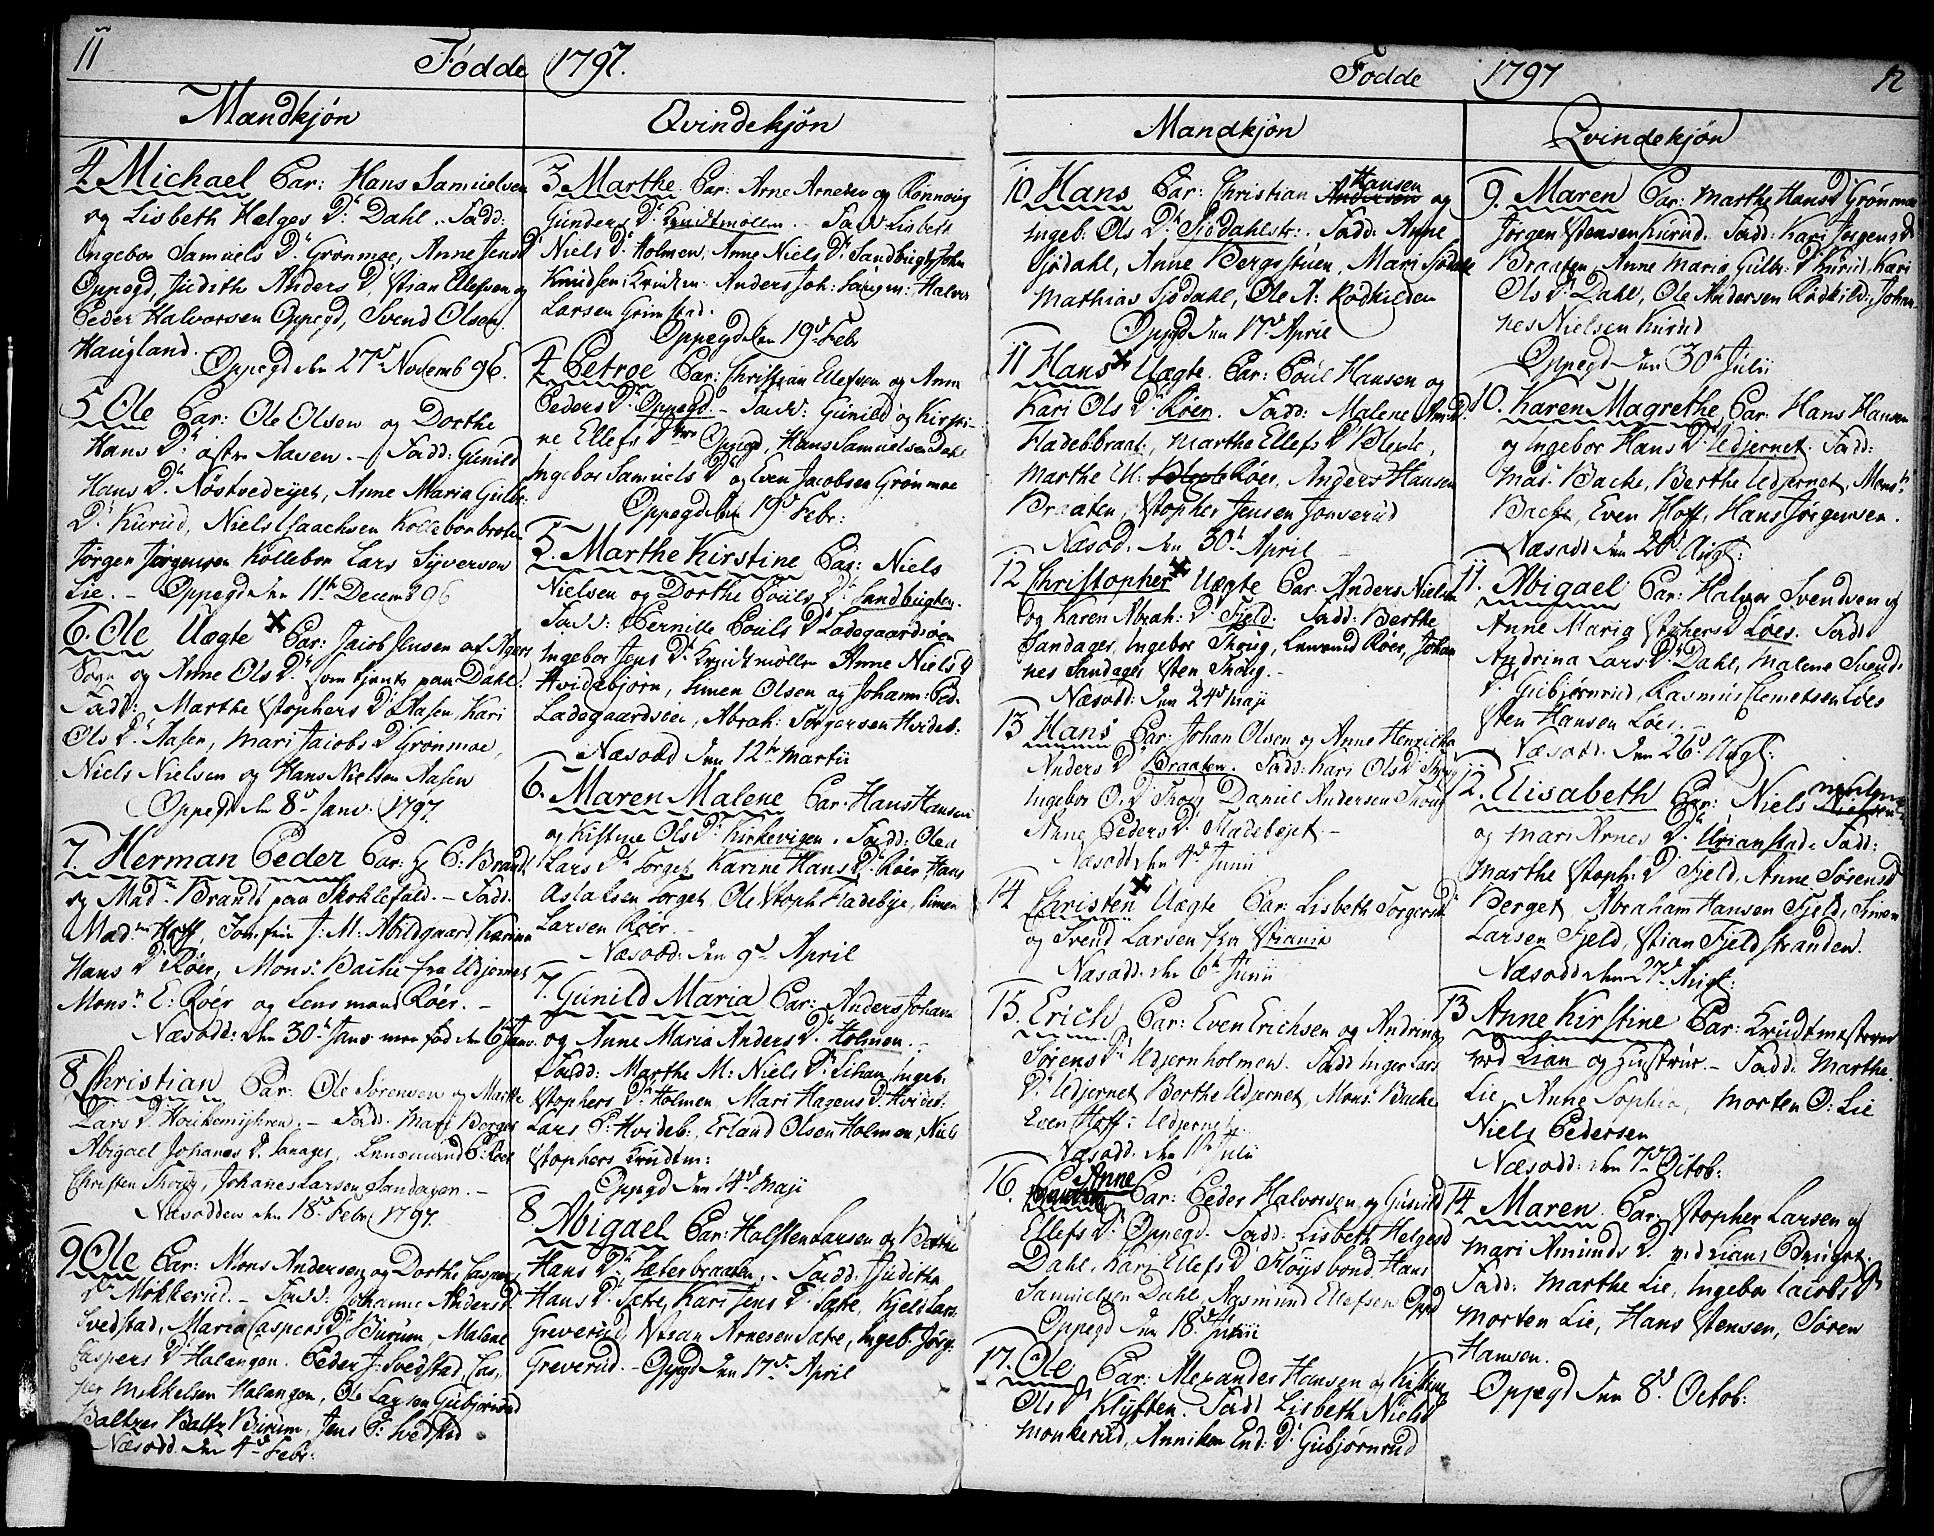 11
Fødde 1797.
Mandkjøn
4. Michael Par: Hans Samuelsen
og Lisbeth Helges D: Dahl. Fadd:
Ingebor Samuels D: Grønmoe, Anne Jens D
Oppegd, Judith Anders D, Stian Ellefsen og
Peder Halvorsen Oppegd, Svend Olsen
Haugland.
Oppegd den 27d Novemb 96.
5. Ole Par: Ole Olsen og Dorthe
Hans D: østre Aasen. Fadd: Gunild
Hans D: Nøstvedeyet, Anne Maria Gulbr:
D: Kurud, Niels Isaachsen Kollebonbroten
Jørgen Jørgensen Kollebon Lars Syversen
Lie. Oppegd den 11te Decemb 96
6. Ole Uægte Par: Jacob Jensen af Agers
Sogn og Anne Ols D: som tjente paa Dahl.
Fadd: Marthe Stophers D: Aasen, Kari
Ols D: Aasen, Mari Jacobs D Grønmoe,
Niels Nielsen og Hans Nielsen Aasen
Oppegd den 8d Janv: 1797.
7. Herman Peder Par: P: Brandt
og Mad: Brandt paa Skoklefald. Fadd:
Mad: Hoff, Jomfrue J: M: Abildgaard, Karine
Hans D: Røer, Mons: Bache fra Udjernet
Mons: E: Røer og Lensmand Røer.
Næsodd: den 30d Janv men fød den 6te Janv.
8. Christian Par: Ole Sørensen og Marthe
Lars D: Houkemyhren. Fadd: Mari Berger
Abigael Johannes D. Sanager, Lensmand E: Røer
Christen Thorg, Johanes Larsen Sandager.
Næsodden den 18d Febr 1797.
9. Ole Par: Mons Andersen og Dorthe Caspers
D: Mokkerud. Fadd: Johanne Anders D:
Svedstad, Maria Caspers D: Burum, Malene
Caspers D: Halangen. Peder J: Svedstad, Cas,
per Mikkelsen Halangen, Ole Larsen Gubjørnrud
Baltzer Baltz Burum, Jens P: Svedstad
Næsodd den 4d Febr:
Qvindekjøn
3 Marthe Par: Arne Arnesen og Rønnovig
Gunders D: Krudtmøllen. Fadd Lisbeth
Niels D: Holmen, Anne Niels D: Sandbugt, John
Knudsen: Krudtm: Anders Joh: Søugen: Halvor
Larsen Grimstad.
Oppegd den 19d Febr
4. Petroe Par: Christian Ellefsen og Anne
Peders D: Oppegd. Fadd: Gunild og Kirsti-
ne Ellefs D Oppegd, Hans Samuelsen Dahl
Ingebor Samuels D: og Even Jacobsen Grønmoe
Oppegd den 19d Febr:
5. Marthe Kirstine Par: Niels
Nielsen og Dorthe Pouls D: Sandbugten.
Fadd: Pernille Pouls D Ladegaardsøen
Ingebor Jens D: Krudtmøllen Anne Niels D
Hvidebjørn, Simen Olsen og Johann: Ped.
Ladegaardsøen, Abrah: Torgersen Hvideb:
Næsodd den 12te Martii
6. Maren Malene Par: Hans Hansen
og Kistine Ols D: Kirkevigen. Fadd: Olea
Lars D: Torget, Karine Hans D: Røer, Hans
Aslaksen Torget, Ole Stoph: Fladebye, Simen
Larsen Røer.
Næsodd: den 9d April
7. Gunild Maria Par: Anders Johann
og Anne Maria Anders D: Holmen.
Fadd: Marthe M: Niels D: Lihan, Ingeb:
Stophers D: Holmen, Mari Hagens D: Hvideb:
Lars P: Hvideb:, Erland Olsen Holmen, Niels
Stophers Krudtm:
Oppegd den 14d Maji
8. Abigael Par: Halsten Larsen og Berthe
Hans D: Sæterbraaten. Fadd: Judithe
Hans D: Sætre, Kari Jens D: Sætre, Kjeld Lars:
Greverud, Nasan Arnesen Sætre, Ingeb: Jørg:
Greverud. Oppegd den 17d April
Fødde 1797
12
Mandkjøn
10 Hans Par: Christian Andersen Hansen og
Ingeb: Ols D: Sjødahlstr: Fadd: Anne
Sjødahl, Anne Bergsstuen, Mari Sjødahl
Mathias Sjødahl, Ole A: Rodkilden
Oppegd den 17d April
11 Hans Uægte. Par: Poul Hansen og
Kari Ols D: Røer. Fadd: Malene Amd:
Fladebbraat:, Marthe Ellefs D: Bleple,
Marthe El: Røer, Anders Hansen
Braaten, Stopher Jensen Jonserud
Næsod: den 30d April
12 Christopher Uægte Par: Anders Nielsen
og Karen Abrah: D: Fjeld: Fadd: Berthe
Sandager, Ingebor Thorg, Lensmand Røer, Johan
nes Sandager Sten Thorg.
Næsodd: den 24d Maji
13 Hans Par: Johan Olsen og Anne Henricha
Anders D: Braaten. Fadd: Kari Ols D: Thorg
Ingebor O: D: Thorg, Daniel Andersen Thorg
Anne Peders D: Fladebøjet
Næsodd den 4d Junii
14 Christen Uægte Par: Lisbeth Torgers D:
og Svend Larsen fra Stiania
Næsodd: den 6te Junii
15. Erich Par: Even Erichsen og Andrina
Sørens D: Udjernholmen. Fadd Inger Lars
D: Udjernet Berthe Udjernet, Mons: Bache
Even Hoff: Udjernet.
Næsodd. den 11te Julii
16. Anne Par: Peder Halvorsen og Gunild
Ellefs D: Oppegd. Fadd: Lisbeth Helges D
Dahl, Kari Ellefs D: Fløysbond, Hans
Samuelsen Dahl, Rasmund Ellefsen Opgd
Oppegd den 18d Junii
17. Ole Par: Alexander Hansen og Kistine
Ols D: Klyften. Fadd Lisbeth Niels D
Monkerud, Anniken End: D: Gubjørnrud
Qvindekjøn
9. Maren Par: Marthe Hans D: Grønmoe
Jørgen Stensen Kurud. Fadd: Kari Jørgens D
Braaten Anne Maria Gulbr: D Kurud, Kari
Ols D: Dahl, Ole Andersen Rodkild:, Johan-
nes Nielsen Kurud
Oppegd den 30te Julii
10. Karen Magrethe Par: Hans Hansen
og Ingebor Hans D: Udjernet. Fadd:
Mad: Bache, Berthe Udjernet, Mons:
Bache, Even Hoff, Hans Jørgensen.
Næsodd den 20d Augt:
11. Abigael Par: Halvor Svendsen og
Anne Maria Stophers D Loes. Fadd:
Andrina Lars D: Dahl, Malene Svends
D: Gubjørnrud, Rasmus Clemetsen Loes
Sten Hansen Loes.
Næsodd: den 26d Augt:
12. Elisabeth Par: Niels
og Mari Arnes D: Urianstad. Fadd:
Marthe Stoph: D: Fjeld, Anne Sørens D
Berget, Abraham Hansen Fjeld, Simen
Larsen Fjeld, Stian Fjeldstranden.
Næsodd den 27d Augt:
13 Anne Kirstine Par: Krudtmesteren
ved Lian og Hustrue. Fadd: Marthe
Lie, Anne Sophia, Morten O: Lie
Niels Pedersen
Næsodd: den 7d Octob:
14 Maren. Par: Stopher Larsen og
Mari Amunds D: ved Lians Bruget.
Fadd: Marthe Lie, Ingebor Jacobs D
Morten Lie, Hans Stensen, Søren
Hansen.
Oppegd den 8d Octob: